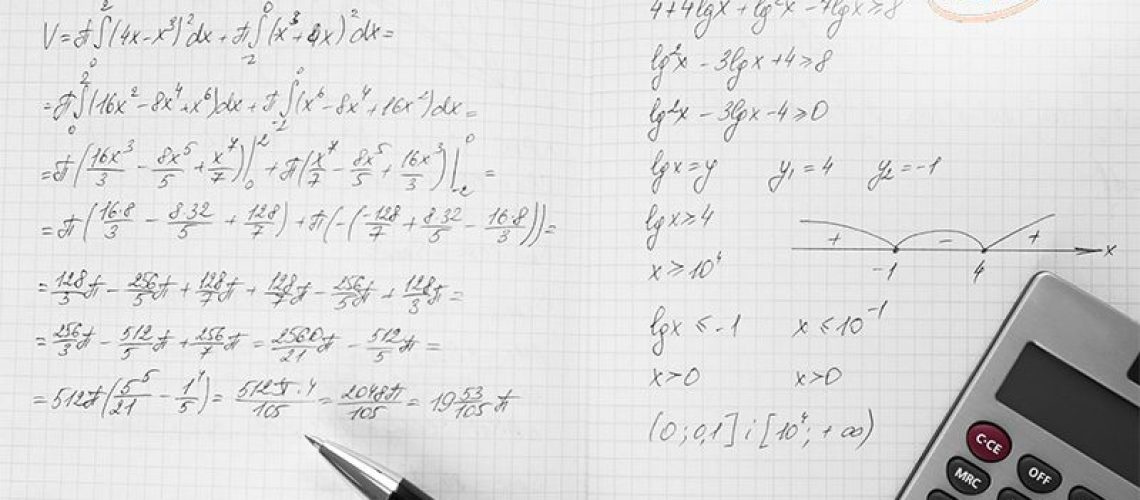 V=π∫₀²(4x-x³)²dx+π∫₋₂⁰(x³+4x)²dx=
=π∫₀²(16x²-8x⁴+x⁶)dx+π∫₋₂⁰(x⁶-8x⁴+16x²)dx=
=π(16x³/3 - 8x⁵/5 + x⁷/7)|₀² + π(x⁷/7 - 8x⁵/5 + 16x³/3)|₋₂⁰ =
=π(16·8/3 - 8·32/5 + 128/7)+π(-(-128/7 + 8·32/5 - 16·8/3))=
=128/3π - 256/5π + 128/7π + 128/7π - 256/5π + 128/3π =
=256/3π - 512/5π + 256/7π = 2560/21π - 512/5π =
=512π(5⁵/21 - 1⁴/5) = 512π·4/105 = 2048π/105 = 19 53/105 π
4+4lgx+lg²x-7lgx≥8
lg²x - 3lgx+4≥8
lg²x - 3lgx-4≥0
lgx=y y₁=4 y₂=-1
lgx≥4
+ - + x
x≥10⁴
-1 4
lgx≤-1 x≤10⁻¹
x>0 x>0
(0;0,1] i [10⁴;+∞)
C·CE
MRC OFF